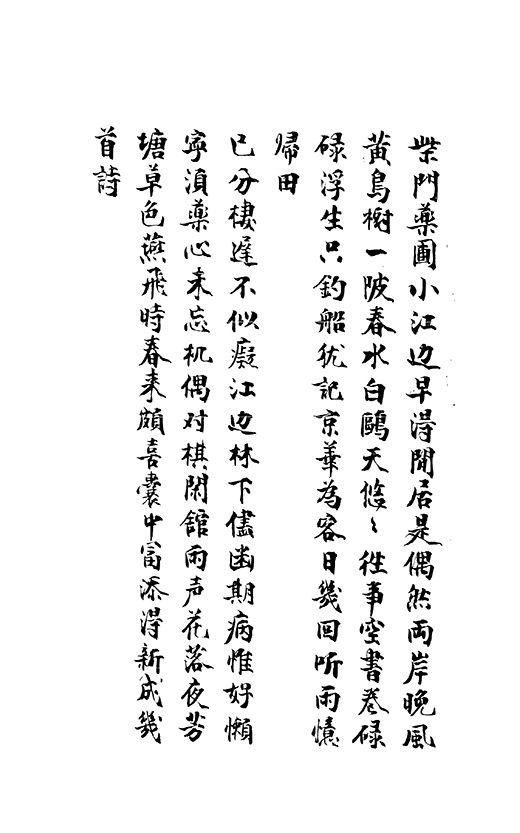 柴門藥圃小江边早淂閒居是偶然兩岸晚風
黄鳥樹一陂春水白鷗天悠〻往事空書卷碌
碌浮生只釣船犹記京華為客日幾回听雨憶
歸田
已分棲遲不似癡江边林下儘幽期病惟好懶
寧湏藥心未忘机偶对棋閑館雨声花落夜芳
塘草色燕飛時春来頗喜囊中富添淂新成幾
首詩